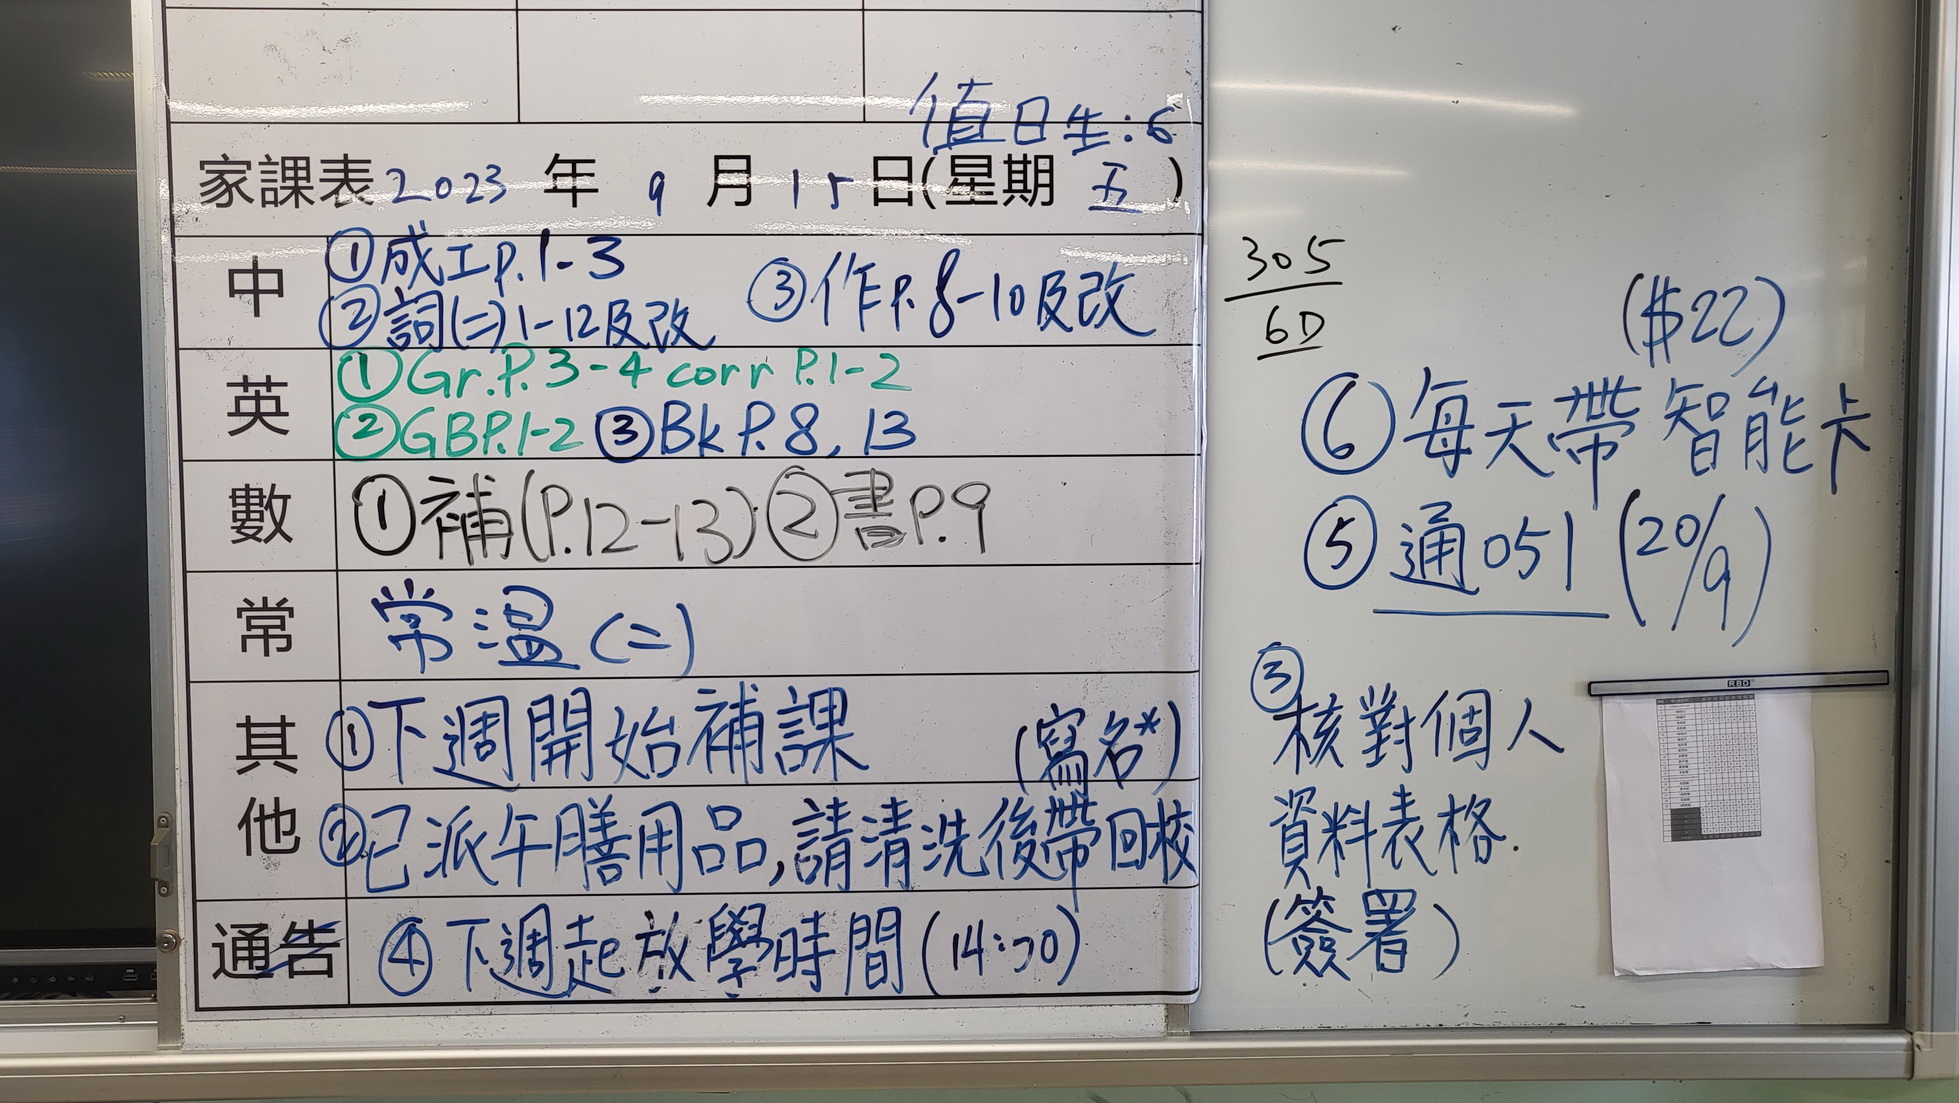 值日生:6
家課表 2023 年 9 月 15 日(星期 五 )
中
①成工P.1-3
②詞(二)1-12及改 ③作P.8-10及改
英
①Gr.P.3-4 corr P.1-2
②GBP.1-2 ③Bk P.8, 13
數
①補(P.12-13) ②書P.9
常
常溫(二)
其他
①下週開始補課 (寫名*)
②已派午膳用品,請清洗後帶回校
通告
④下週起放學時間(14:30)
305
6D
($22)
⑥每天帶智能卡
⑤通051 (20/9)
③
核對個人
資料表格.
(簽署)
RBD